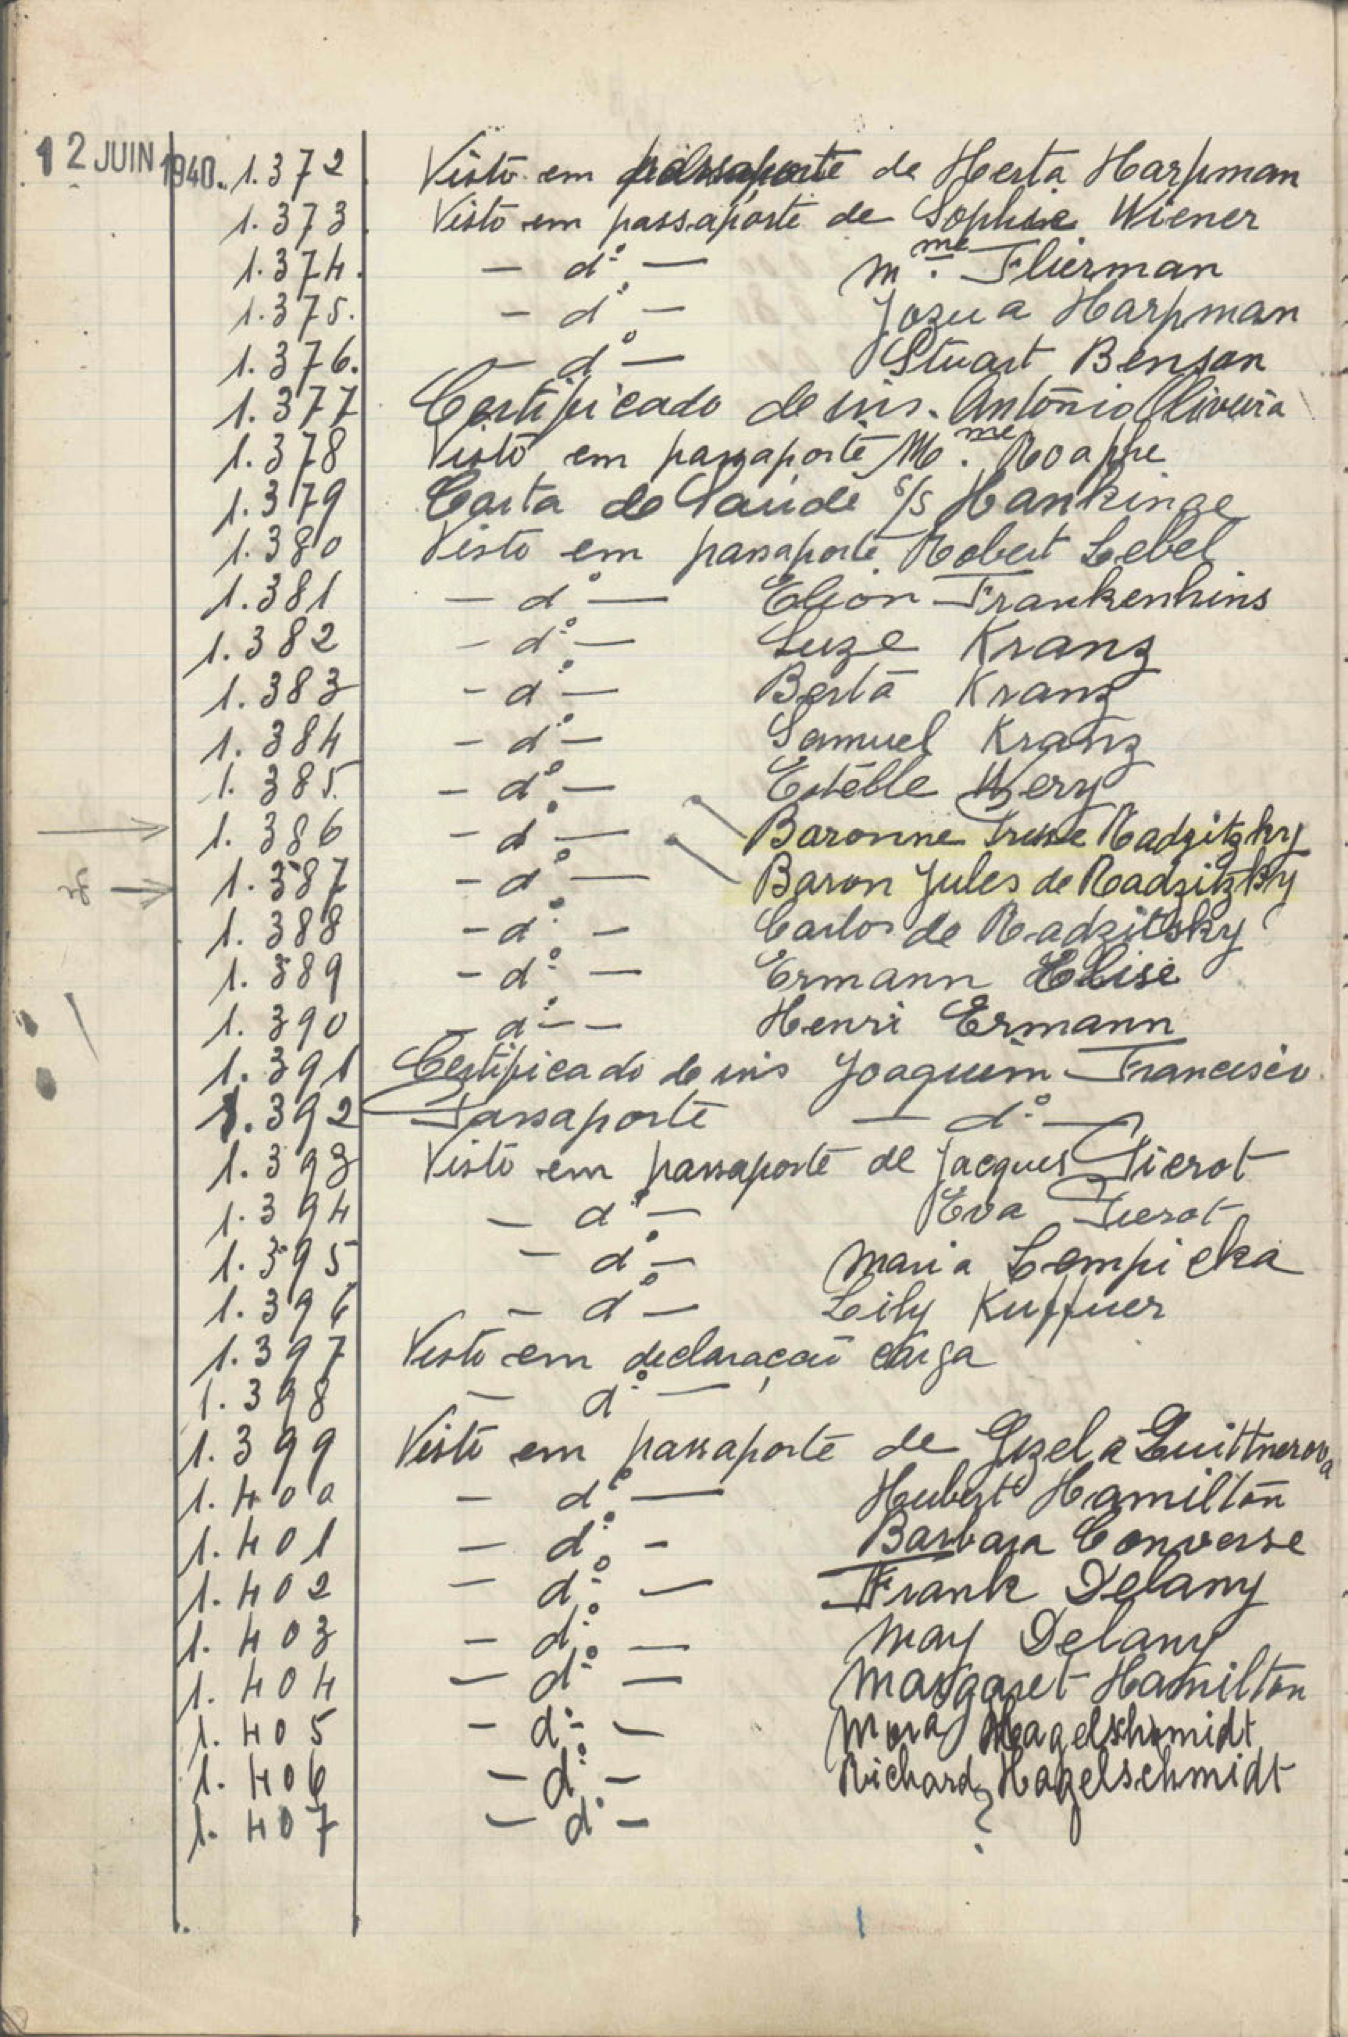 12 JUIN 1940. 1.372 Visto em passaporte de Herta Harpman
1.373 Visto em passaporte de Sophie Wiener
1.374. — dº — Mme. Flierman
1.375. — dº — Jozua Harpman
1.376. — dº — Stuart Benson
1.377 Certificado de ins. António Oliveira
1.378 Visto em passaporte Mme. Roaphe
1.379 Carta de Saúde s/s Hankinge
1.380 Visto em passaporte Robert Lebel
1.381 — dº — Elion Frankenhins
1.382 — dº — Luze Kranz
1.383 — dº — Berta Kranz
1.384 — dº — Samuel Kranz
1.385. — dº — Estélle Wery
1.386 — dº — Baronne Radzitzky
1.387 — dº — Baron Jules de Radzitzky
1.388 — dº — Carlos de Radzitsky
1.389 — dº — Ermann Elise
1.390 — dº — Henri Ermann
1.391 Certificado de ins Joaquim Francisco
1.392 Passaporte — dº —
1.393 Visto em passaporte de Jacques Pierot
1.394 — dº — Eva Pierot
1.395 — dº — Maria Lempicka
1.396 — dº — Lily Kuffner
1.397 Visto em declaração carga
1.398 — dº —
1.399 Visto em passaporte de Gizela Quittnerova
1.400 — dº — Hubert Hamilton
1.401 — dº — Barbara Converse
1.402 — dº — Frank Delany
1.403 — dº — May Delany
1.404 — dº — Margaret Hamilton
1.405 — dº — Mora Hagelschmidt
1.406 — dº — Richard Hagelschmidt
1.407 — dº — ?